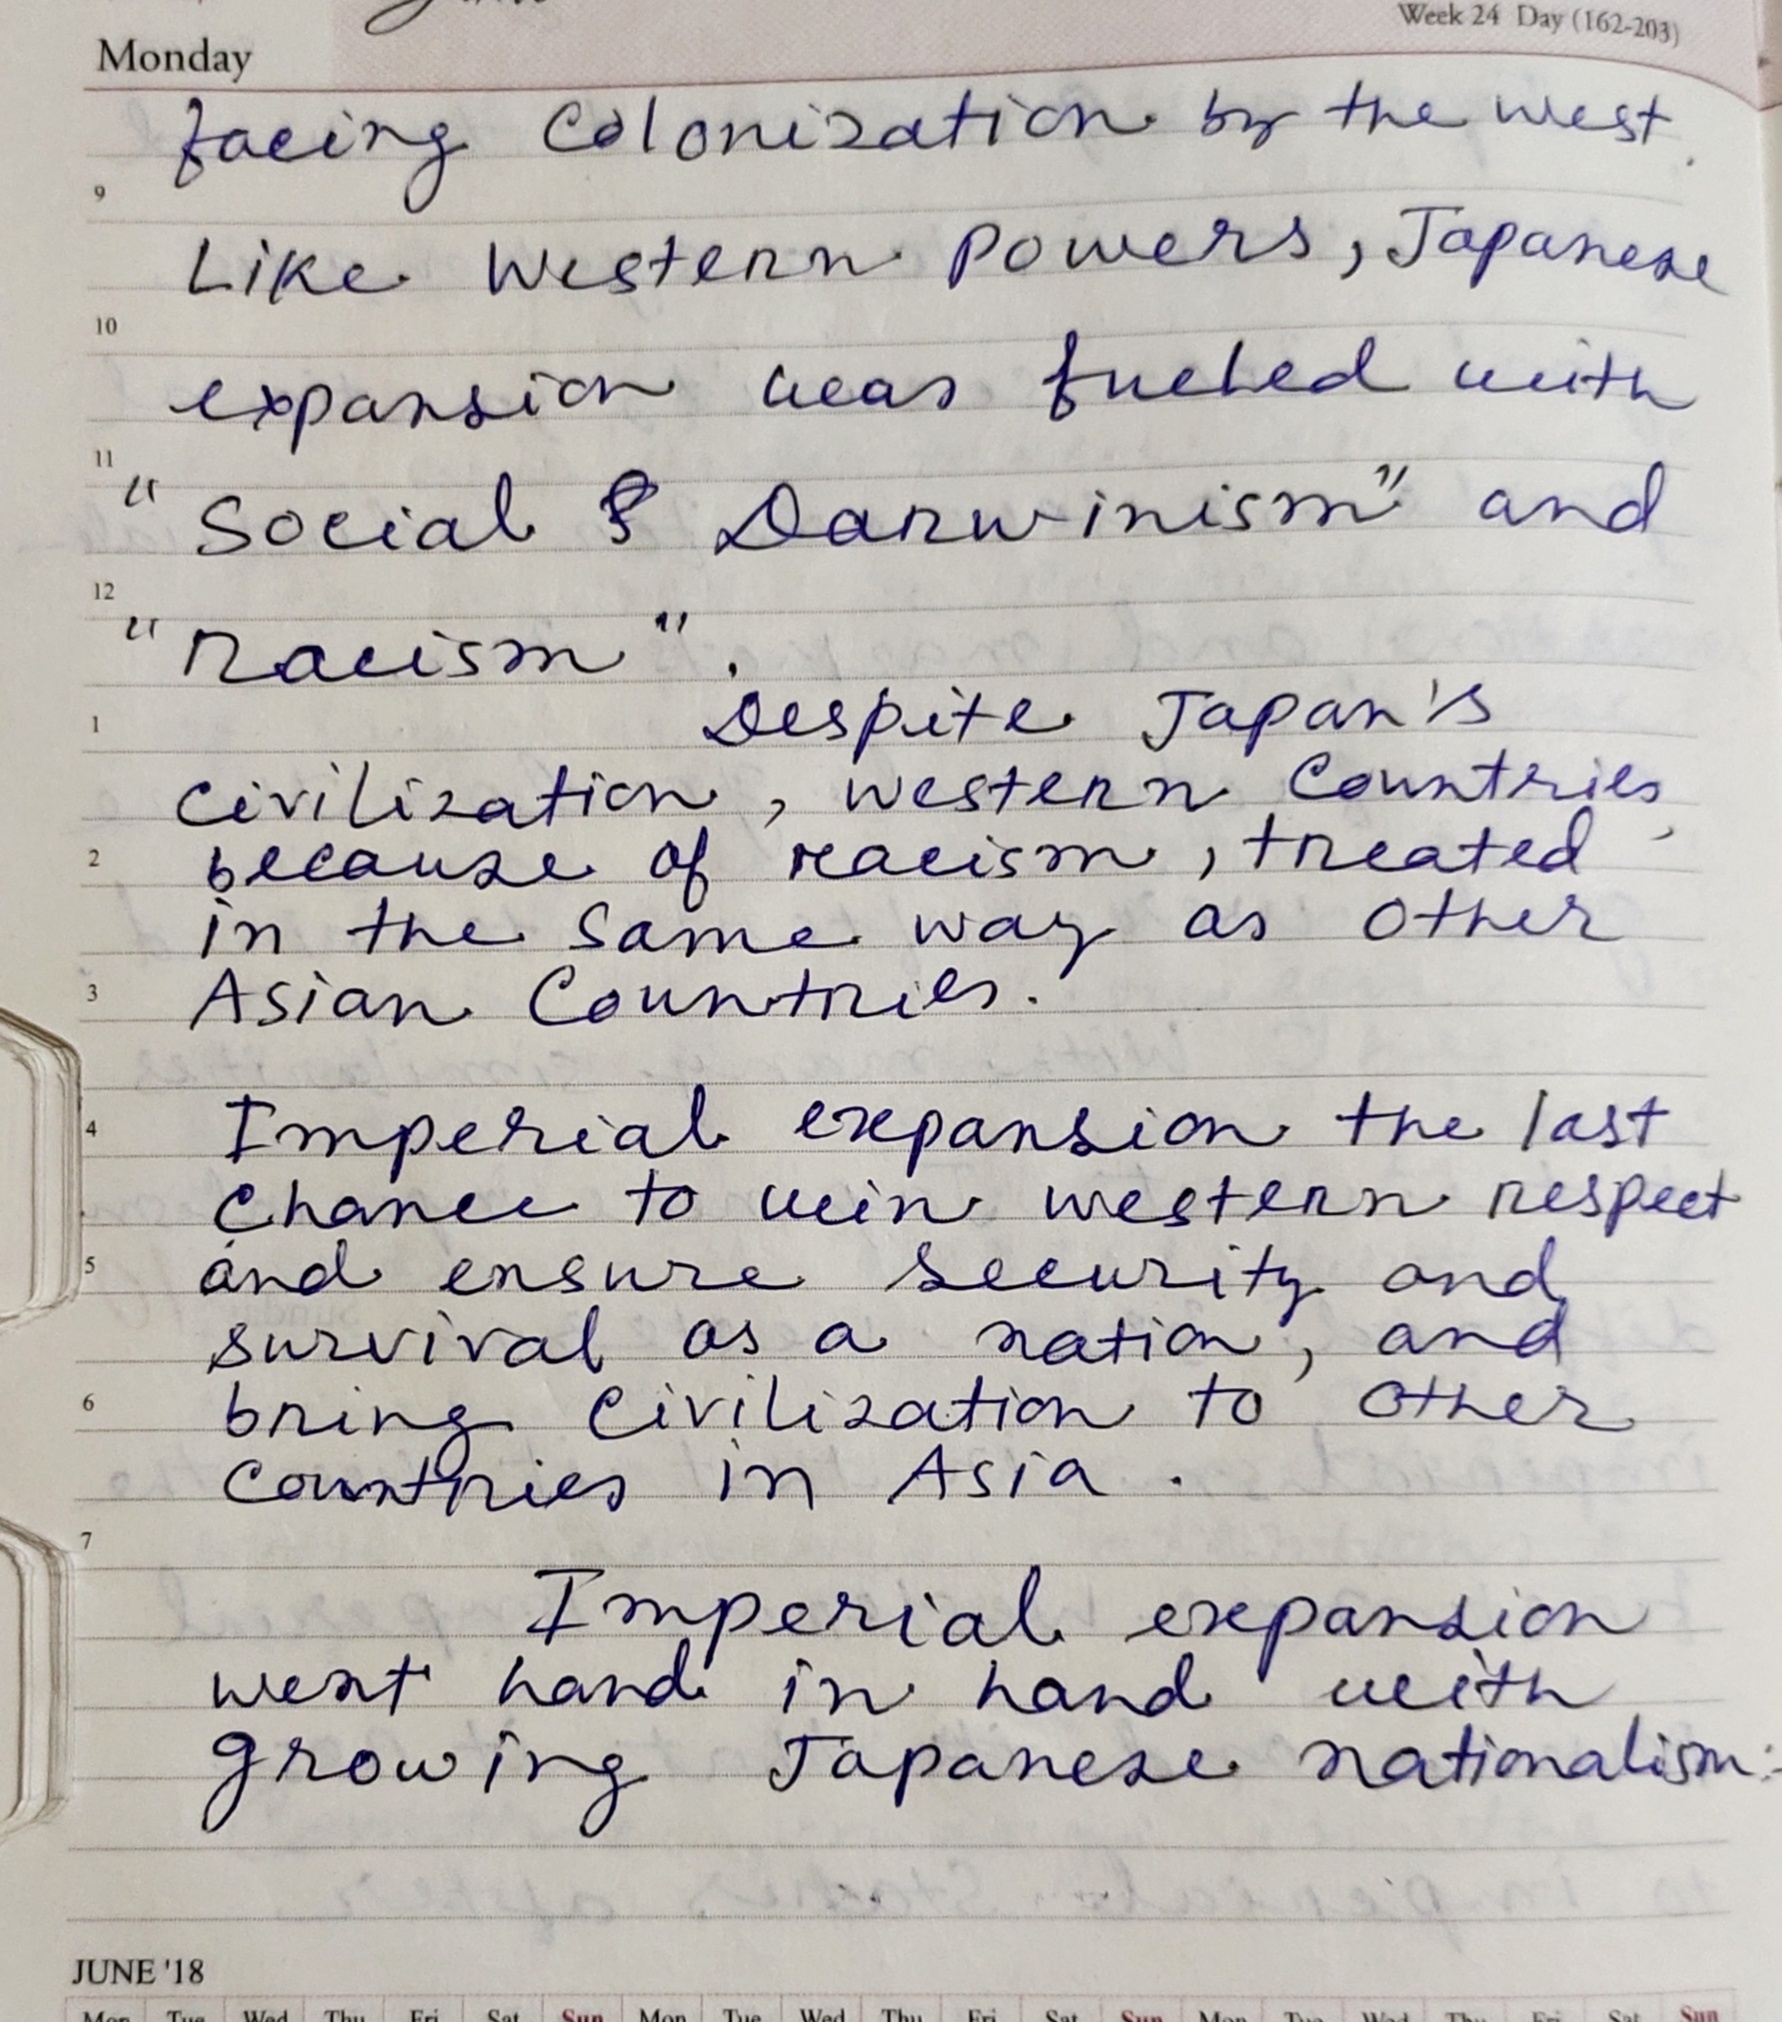 June
Week 24 Day (162-203)
Monday
facing Colonization by the west.
9
Like Western Powers, Japanese
10
expansion was fueled with
11
"Social Darwinism" and
12
"racism".
1
Despite Japan's
civilization, western Countries,
2
because of racism, treated
in the same way as other
3
Asian Countries.
4
Imperial expansion the last
chance to win western respect
5
and ensure security and
survival as a nation, and
6
bring civilization to other
countries in Asia.
7
Imperial expansion
went hand in hand with
growing Japanese nationalism:-
JUNE '18
Mon Tue Wed Thu Fri Sat Sun Mon Tue Wed Thu Fri Sat Sun Mon Tue Wed Thu Fri Sat Sun